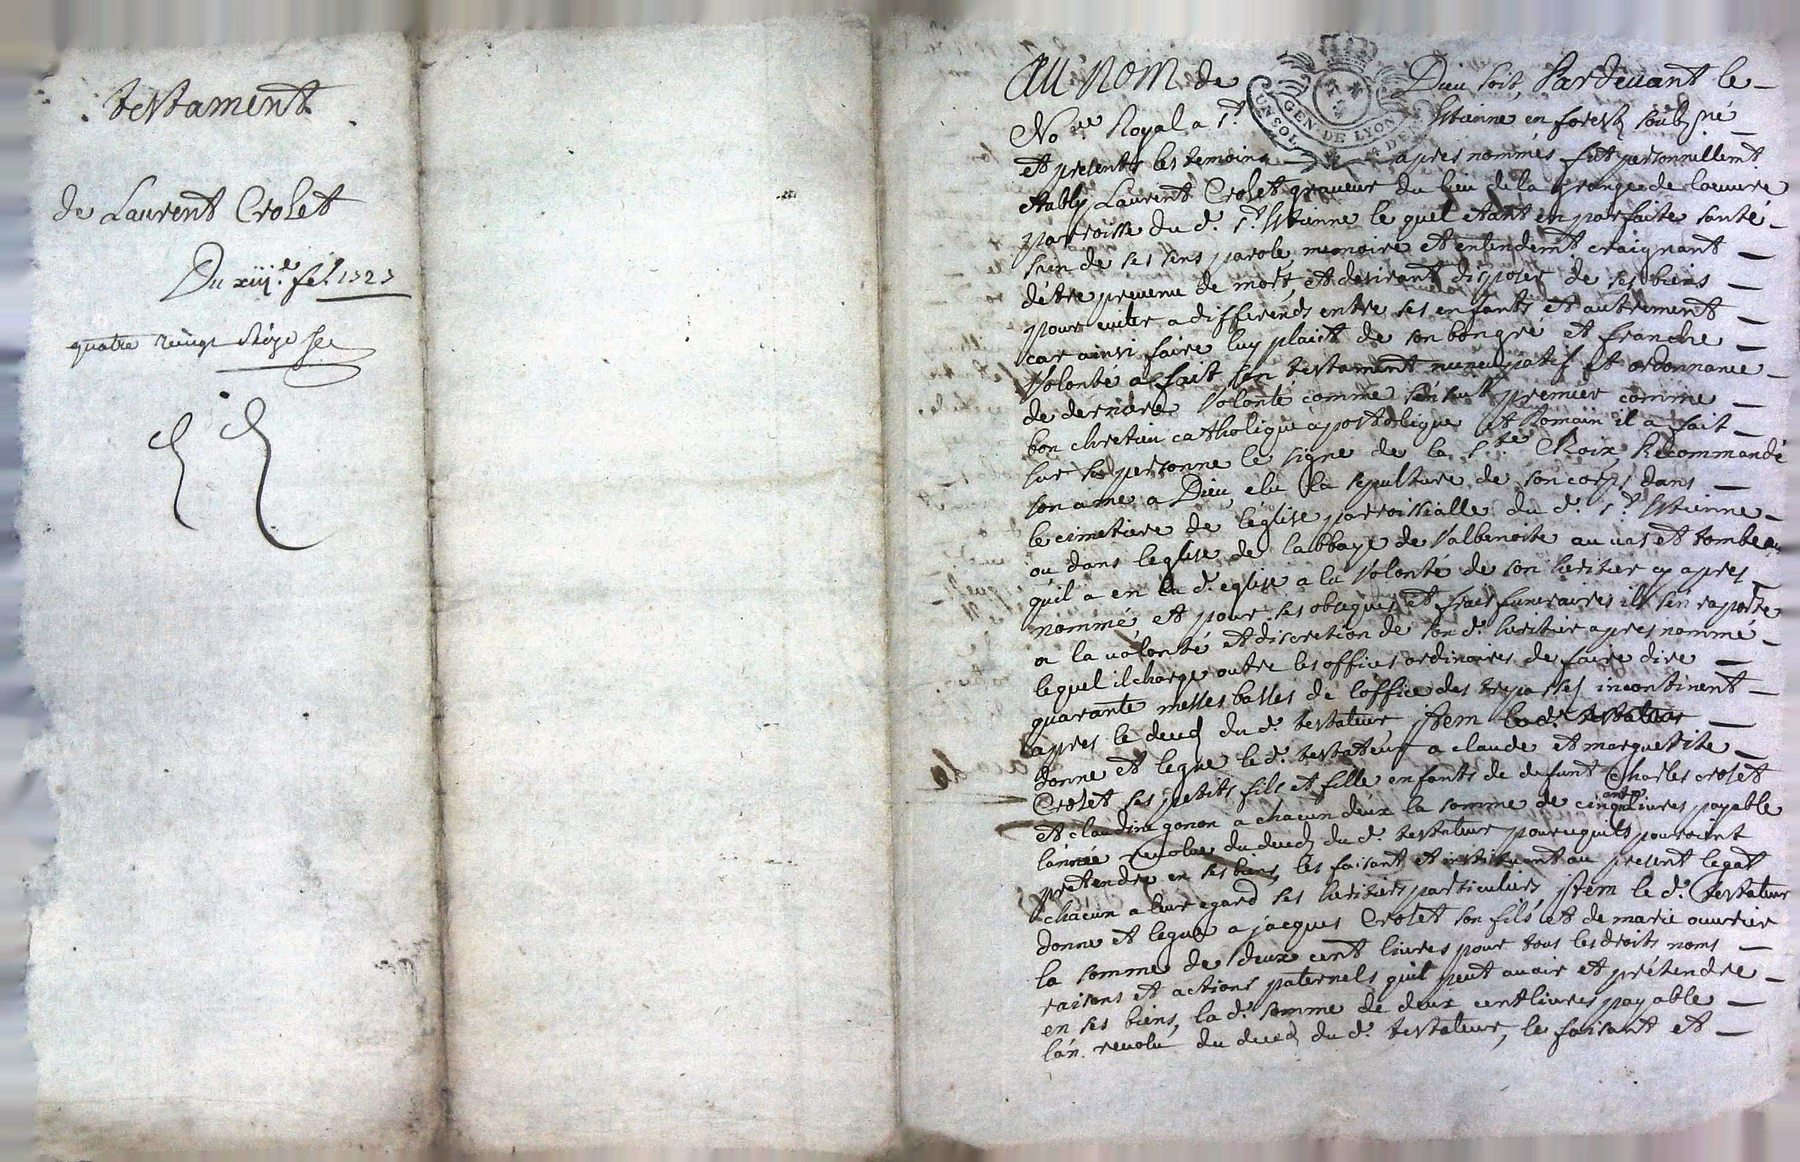 testament
de Laurent Crozet
Du xiij.e fe.r 1723
quatre vingt seize
Au nom de Dieu soit, Pardevant le
No.re Royal a S.t Estienne en forest soubsné
GEN. DE LYON
UN SOL
4 DEN
et presents les temoins apres nommés fut personnellem.t
etably Laurent Crozet graveur du lieu de la grange de loeuvre
parroisse du d. S.t Estienne le quel etant en parfaite santé
sain de ses sens parole memoire et entendem.t craignant
d'être prevenu de mort et desirant disposer de ses biens
pour eviter a differends entre ses enfants et autrement
car ainsi faire luy plaict de son bongré et franche
Volonté a fait son testament nuncupatif et ordonnance
de derniere Volonté comme s'ensuit premier comme
bon chretien catholique apostolique et Romain il a fait
sur sa personne le signe de la S.te Croix, Recommandé
son ame a Dieu, elu la sepulture de son corps dans
le cimetiere de l'eglise parroissialle du d. S.t Estienne
ou dans leglise de labbaye de Valbenoite au vas et tombeau
qu'il a en la d. eglise a la Volonté de son heritier cy apres
nommé et pour ses obseques et frais funeraires il s'en raporte
a la volonté et discretion de son d. heritier apres nommé
lequel il charge outre les offices ordinaires de faire dire
quarante messes basses de l'office des trepassés incontinent
apres le deced du d. testateur item le d. testateur
donne et legue le d. testateur a claude et marguerite
Crozet ses petits fils et fille enfants de defunt Charles crozet
et claudine gonon a chacun deux la somme de cinquante livres payable
l'année revolue du deced du d. testateur pour ce quils pourroint
pretendre en ses biens, les faisant et instituant au present legat
chacun a leur egard ses heritiers particuliers, item le d. testateur
donne et legue a jacques Crozet son fils et de marie ouvrier
la somme de deux cent livres pour tous les droits noms
raisons et actions paternels quil peut avoir et prétendre
en ses biens, la d. somme de deux cent livres payable
l'an revolu du deced du d. testateur, le faisant et